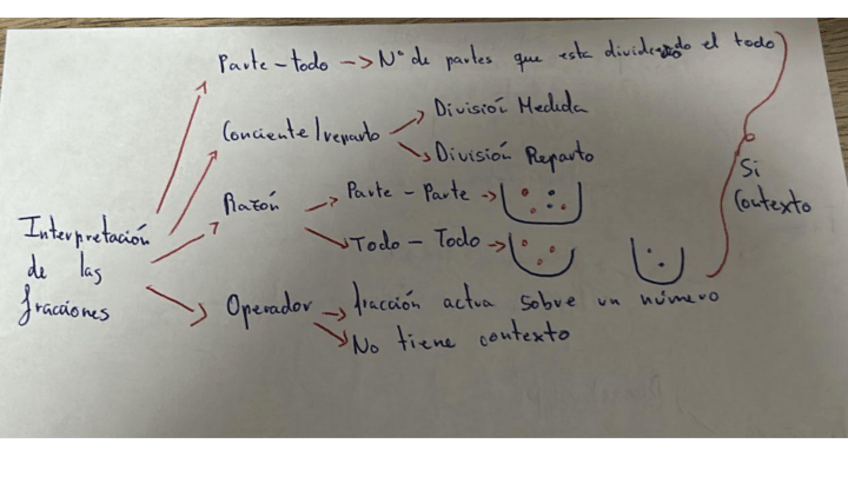 Parte-todo -> Nº de partes que esta dividiendo el todo
Conciente/reparto
División Medida
División Reparto
Si
Contexto
Razón
Parte - Parte ->
Todo - Todo ->
Interpretación
de las
fracciones
Operador -> fracción actua sobre un número
No tiene contexto